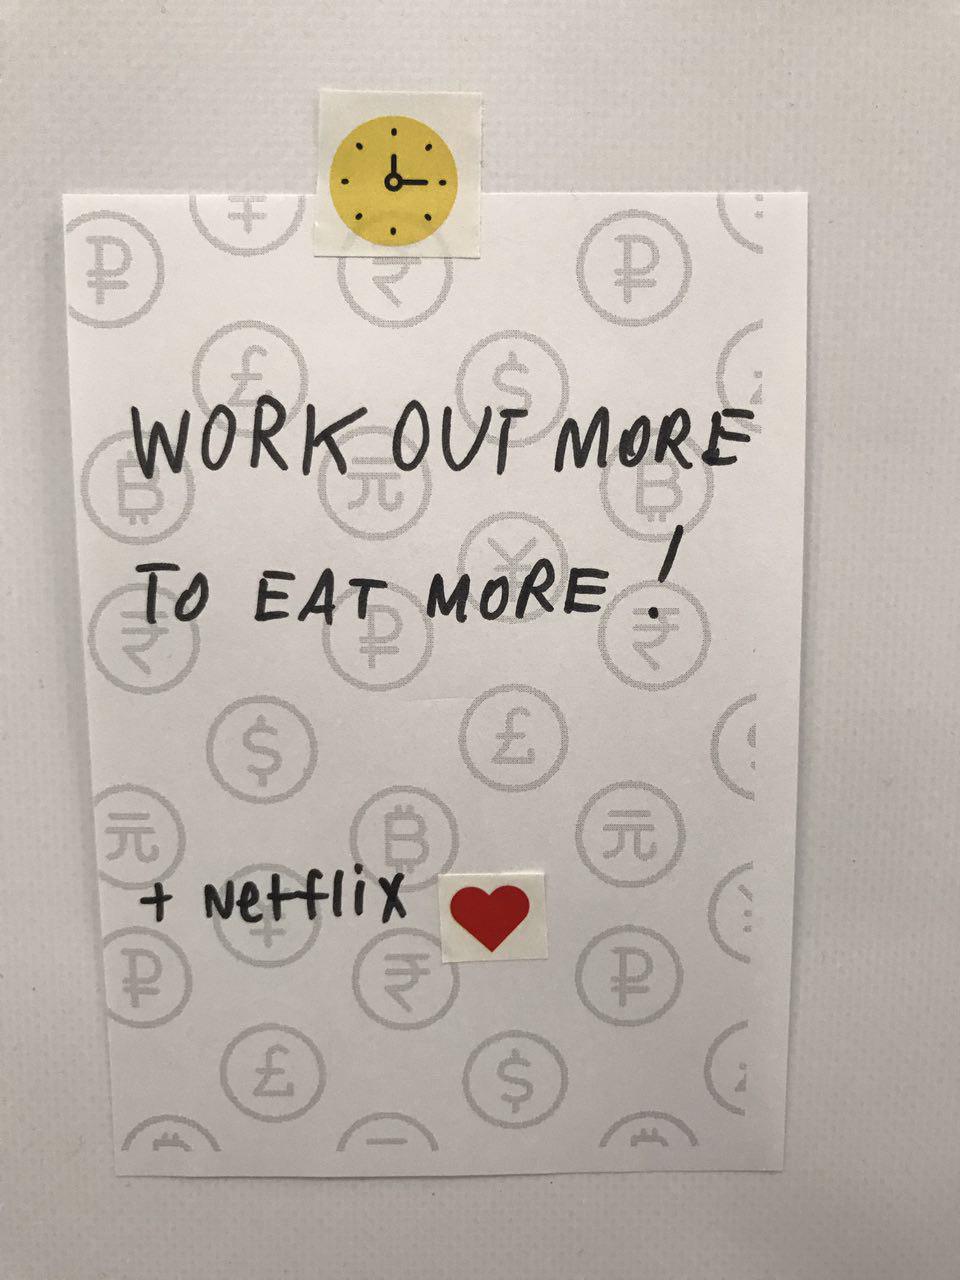 WORK OUT MORE
TO EAT MORE!
+ Netflix